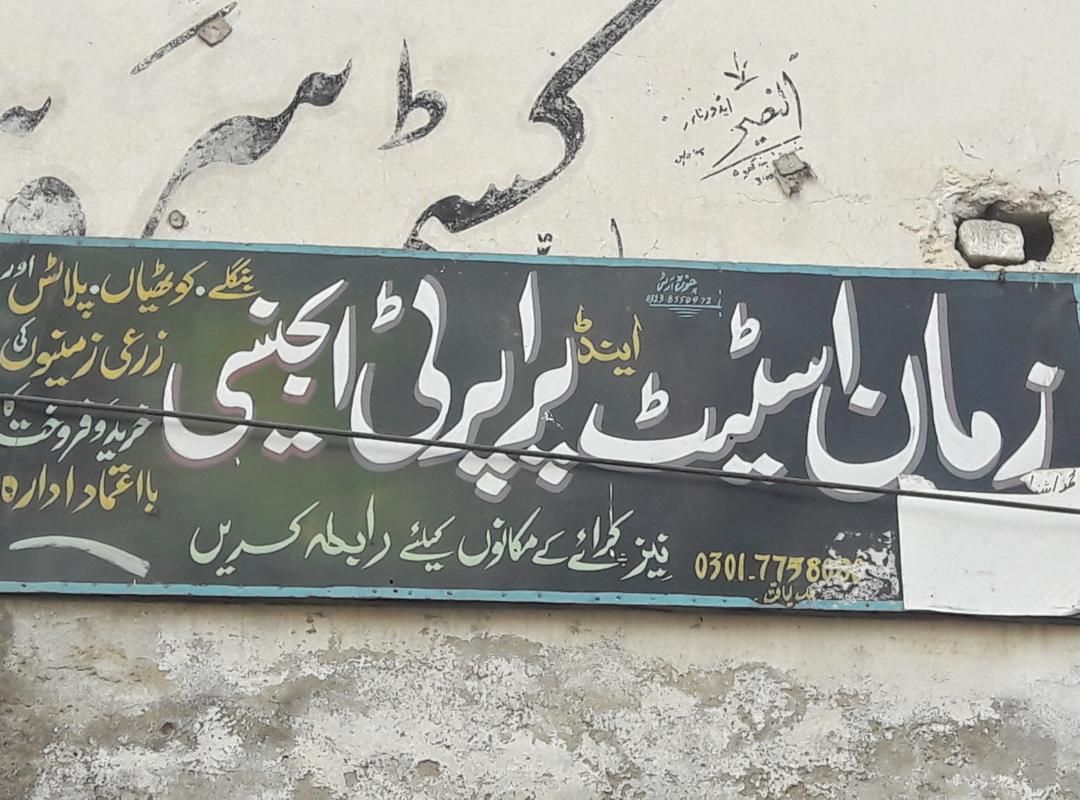 النصیر
ایڈورٹائزر
زمان اسٹیٹ اینڈ پراپرٹی ایجنسی
0323 8550972
بنگلے۔ کوٹھیاں۔ پلاٹس اور
زرعی زمینوں کی
خرید و فروخت کا
بااعتماد ادارہ
نیز کرائے کے مکانوں کیلئے رابطہ کریں
0301-7758